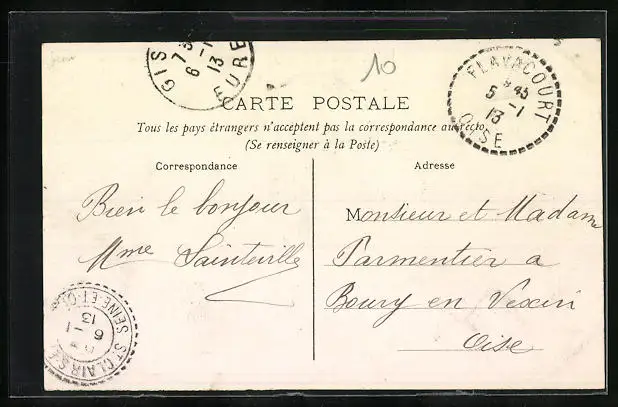 GIS
7 3
6 -1
13
EURE
10
FLAVACOURT
* 45
5 -1
13
OISE
CARTE POSTALE
Tous les pays étrangers n'acceptent pas la correspondance au recto
(Se renseigner à la Poste)
Correspondance
Adresse
Bien le bonjour
Mme Sainteville
Monsieur et Madame
Parmentier a
Boury en Vexin
Oise
ST CLAIR S
6 -1
13
SEINE-ET-O